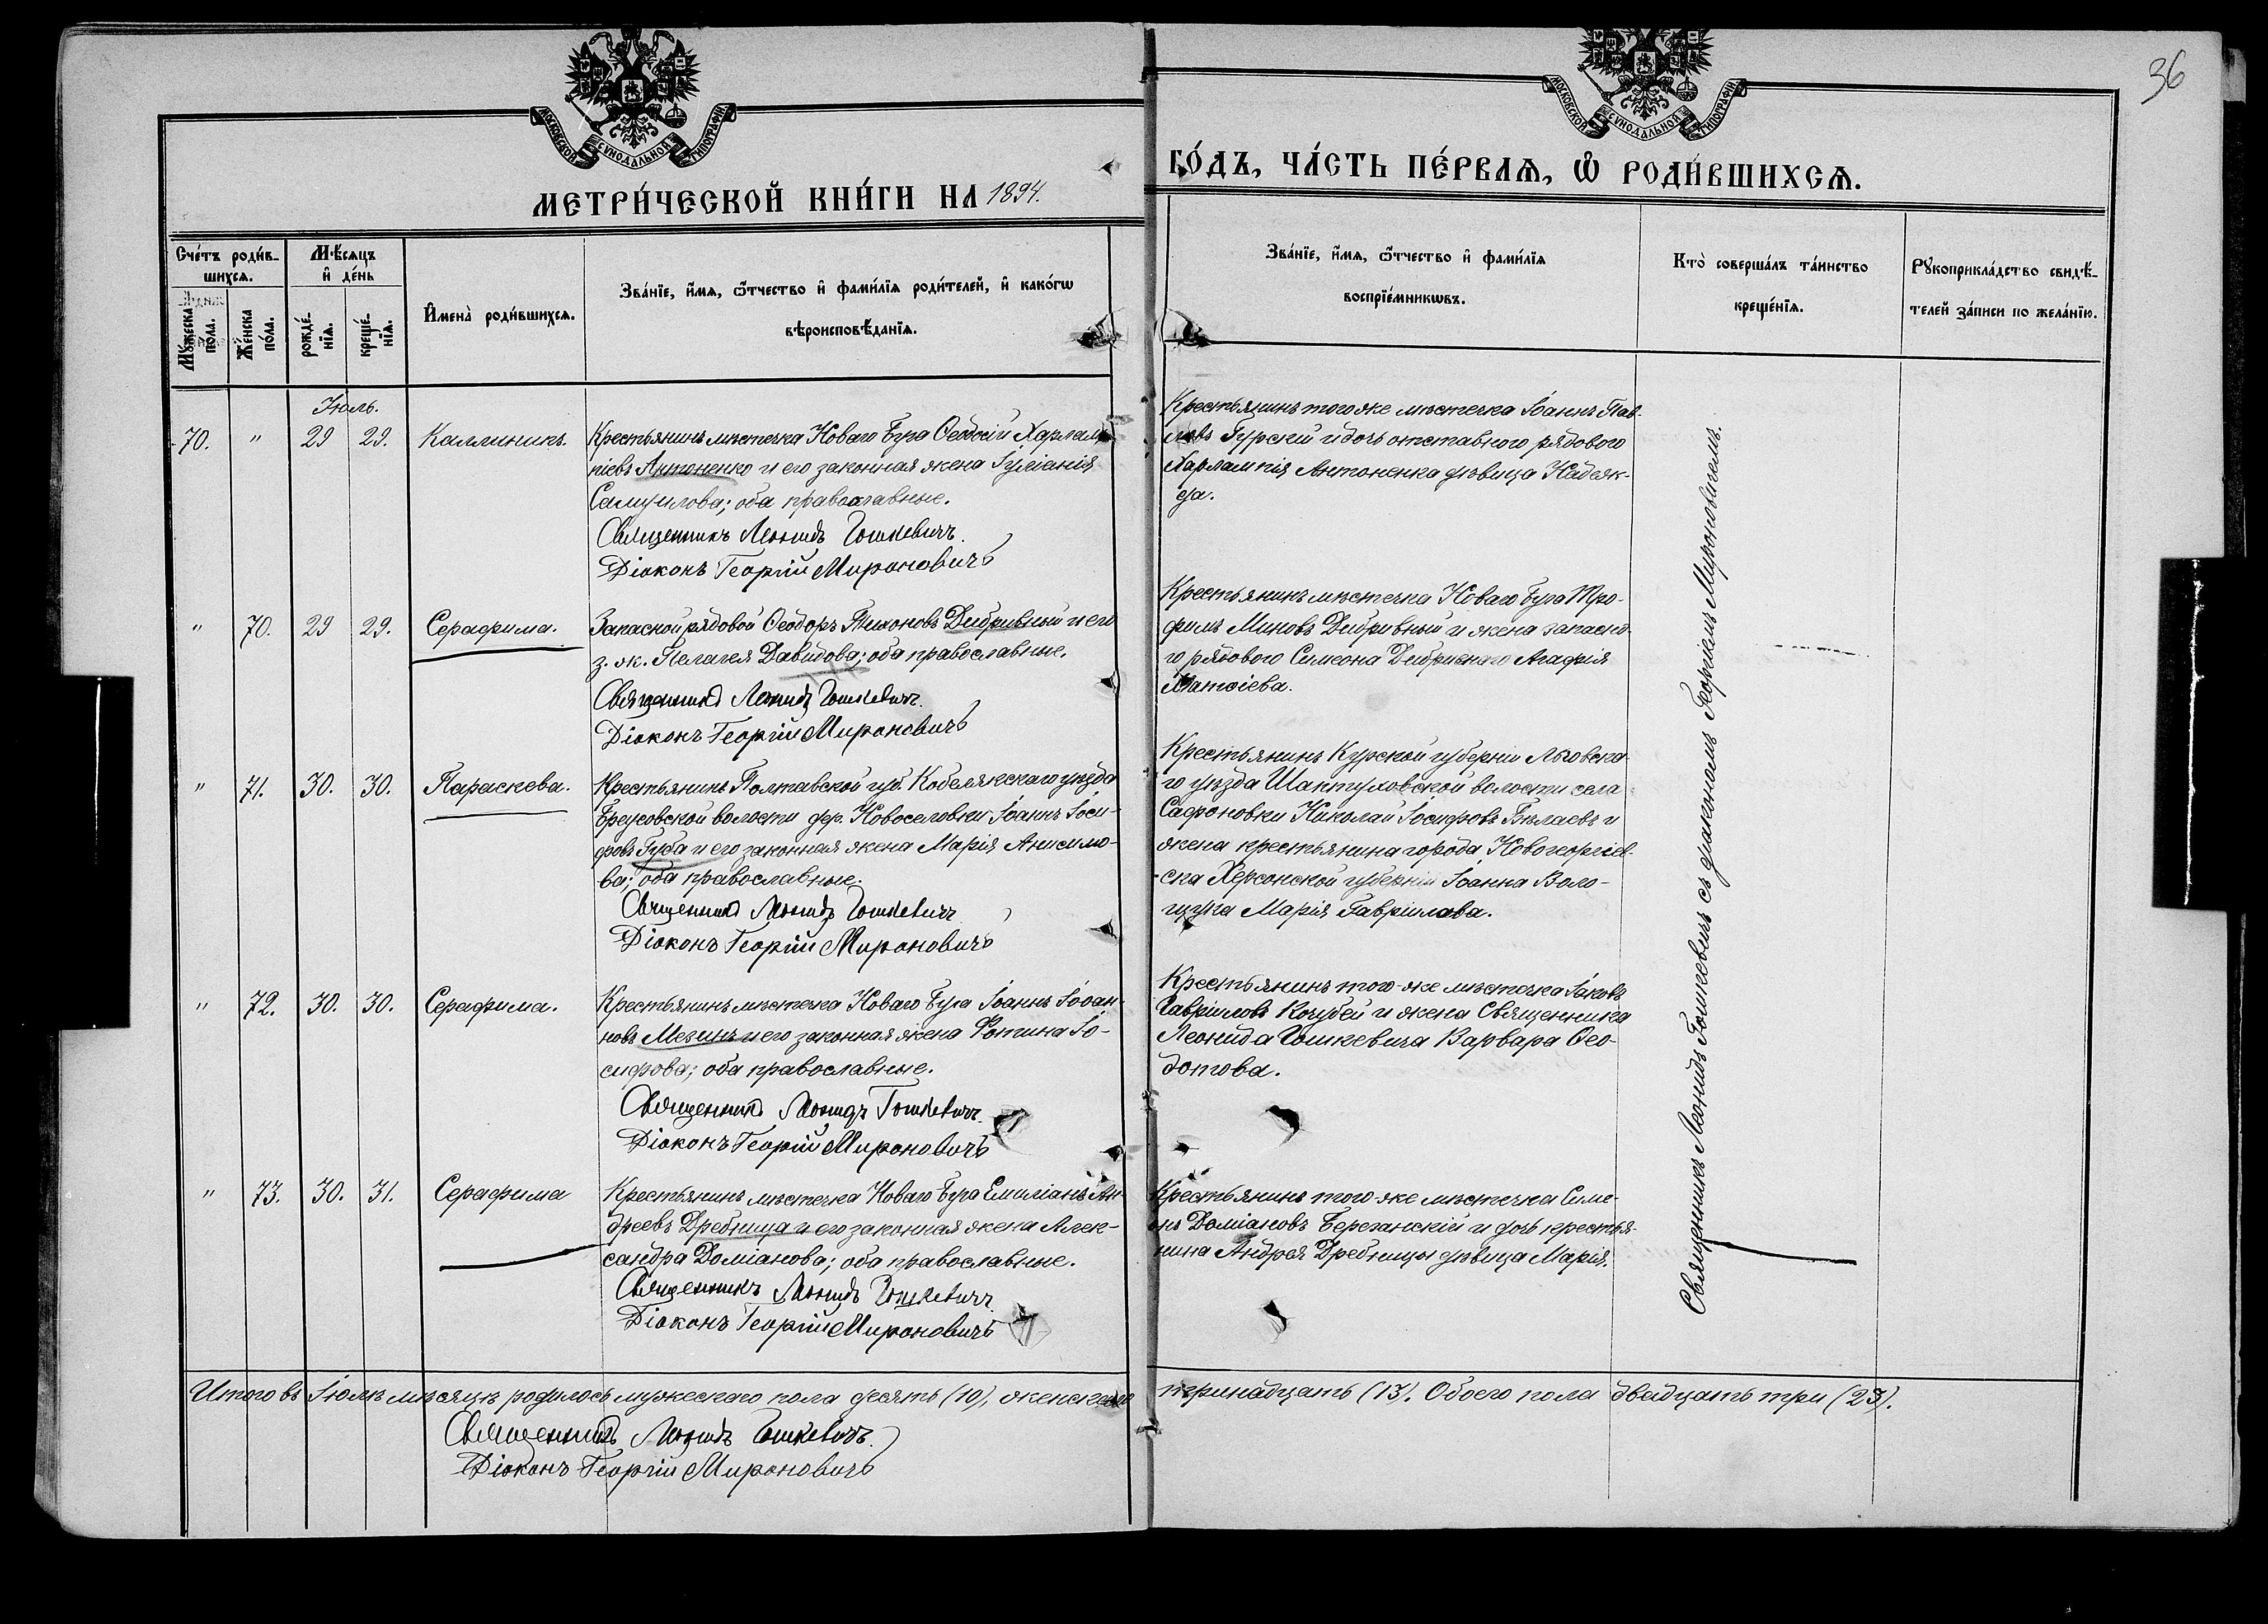 36
МОСКОВСКОЙ СѴНОДАЛЬНОЙ ТИПОГРАФІИ
МОСКОВСКОЙ СѴНОДАЛЬНОЙ ТИПОГРАФІИ
МЕТРИ́ЧЕСКОЙ КНИ́ГИ НА 1894.
ГО́ДЪ, ЧА́СТЬ ПЕ́РВАѦ, Ѽ РОДИ́ВШИХСѦ.
Сче́тъ роди́в-
шихсѧ.
Мꙋ́жеска по́ла.
Же́нска по́ла.
Мѣ́сѧцъ
и҆ де́нь
рожде́-
нїѧ.
креще́-
нїѧ.
И҆мена̀ роди́вшихсѧ.
Зва́нїе, и҆́мѧ, ѻ҆́тчество и҆ фами́лїѧ роди́телей, и҆ како́гѡ
вѣроисповѣ́данїѧ.
Зва́нїе, и҆́мѧ, ѻ҆́тчество и҆ фами́лїѧ
воспрїе́мникѡвъ.
Кто̀ соверша́лъ та́инство
креще́нїѧ.
Рꙋкоприкла́дство свидѣ́-
телей за́писи по жела́нїю.
Іюль.
70. " 29 29. Каллиникъ.
Крестьянинъ мѣстечка Новаго Буга Ѳеодосій Харлам-
піевъ Антоненко и его законная жена Іуліанія
Самуилова; оба православные.
Священникъ Леонидъ Гошкевичъ.
Діаконъ Георгій Мироновичъ
Крестьянинъ того же мѣстечка Іоаннъ Пав-
ловъ Гурскій и дочь отставного рядового
Харлампія Антоненка дѣвица Надеж-
да.
" 70. 29 29. Серафима.
Запасной рядовой Ѳеодоръ Тихоновъ Дибривный и его
з. ж. Пелагея Давидова; оба православные.
Священникъ Леонидъ Гошкевичъ.
Діаконъ Георгій Мироновичъ
Крестьянинъ мѣстечка Новаго Буга Тро-
фимъ Миновъ Дибривный и жена запасно-
го рядового Симеона Дибривнаго Агафія
Матѳіева.
" 71. 30. 30. Параскева.
Крестьянинъ Полтавской губ. Кобелякскаго уѣзда
Бреусовской волости дер. Новоселовки Іоаннъ Іоси-
фовъ Губа и его законная жена Марія Анисимо-
ва; оба православные.
Священникъ Леонидъ Гошкевичъ
Діаконъ Георгій Мироновичъ
Крестьянинъ Курской губерніи Льговска-
го уѣзда Шептуховской волости села
Сафоновки Николай Іосифовъ Бѣлаевъ и
жена крестьянина города Новогеоргіев-
ска Херсонской губерніи Іоанна Воло-
щука Марія Гавріилова.
" 72. 30. 30. Серафима.
Крестьянинъ мѣстечка Новаго Буга Іоаннъ Іоан-
новъ Мезинъ и его законная жена Фотина Іо-
сифова; оба православные.
Священникъ Леонидъ Гошкевичъ.
Діаконъ Георгій Мироновичъ
Крестьянинъ того-же мѣстечка Іаковъ
Гавріиловъ Кочубей и жена Священника
Леонида Гошкевича Варвара Ѳео-
дотова.
" 73. 30. 31. Серафима
Крестьянинъ мѣстечка Новаго Буга Емиліанъ Ан-
дреевъ Дребница и его законная жена Алек-
сандра Доміанова; оба православные.
Священникъ Леонидъ Гошкевичъ
Діаконъ Георгій Мироновичъ
Крестьянинъ того-же мѣстечка Симе-
онъ Доміановъ Березанскій и дочь крестья-
нина Андрея Дребницы дѣвица Марія.
Священникъ Леонидъ Гошкевичъ съ діакономъ Георгіемъ Мироновичемъ.
Итого въ Іюлѣ мѣсяцѣ родилось мужескаго пола десять (10), женскаго тринадцать (13). Обоего пола двадцать три (23).
Священникъ Леонидъ Гошкевичъ.
Діаконъ Георгій Мироновичъ